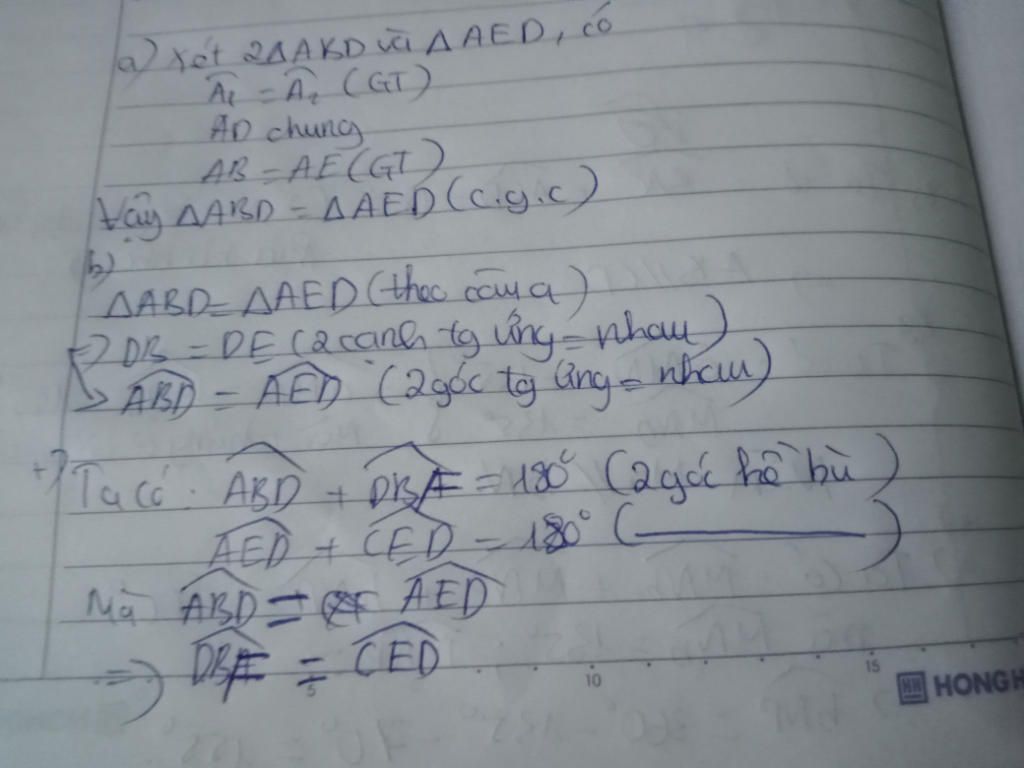 a) Xét 2ΔAKD và ΔAED, có
Â₁ = Â₂ (GT)
AD chung
AB = AE (GT)
Vậy ΔABD = ΔAED (c.g.c)
b)
ΔABD = ΔAED (theo câu a)
=> DB = DE (2 cạnh tg ứng = nhau)
-> ABD = AED (2 góc tg ứng = nhau)
+) Ta có: ABD + DBF = 180° (2 góc kề bù)
AED + CED = 180° (———)
Mà ABD = AED
=> DBF = CED
5 10 15
HONGH